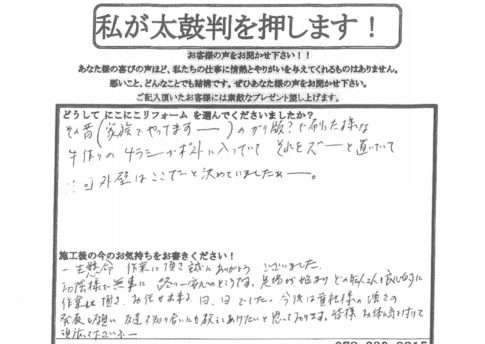 私が太鼓判を押します！
お客様の声をお聞かせ下さい！！
あなた様の喜びの声ほど、私たちの仕事に情熱とやりがいを与えてくれるものはありません。
悪いこと、どんなことでも結構です。ぜひあなた様の声をお聞かせ下さい。
ご記入頂いたお客様には素敵なプレゼント差し上げます。
どうして にこにこリフォーム を選んでくださいましたか？
昔(家族でやってますー)のガリ版?で刷った様な
手作りのチラシがポストに入っていて それをズーと置いていて
外壁はここだと決めていましたぁー。
施工後の今のお気持ちをお書きください！
一生懸命 作業に頂き誠にありがとう ございました。
お陰様で無事に 終り一安心のところです。足場が始まり どの職人さんも良心的に
作業を頂き、お任せ出来る日、日でした。今後は貴社様の 益々の
発展を願い 友達や知り合いにも教えてあげたいと思っております。皆様 お体に気を付けて
頑張ってください